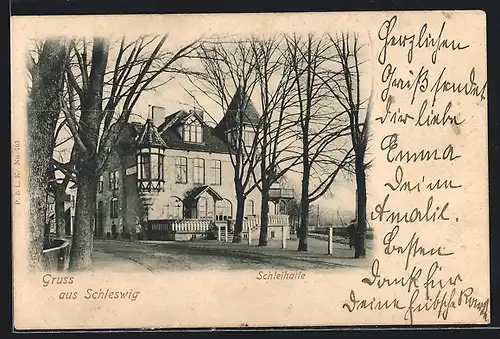 P. & L. K. No. 765
Gruss
aus Schleswig
Schleihalle
Herzlichen
Gruß sendet
Dir liebe
Emma
Deine
Amalie.
Besten
Dank für
Deine hübsche Karte